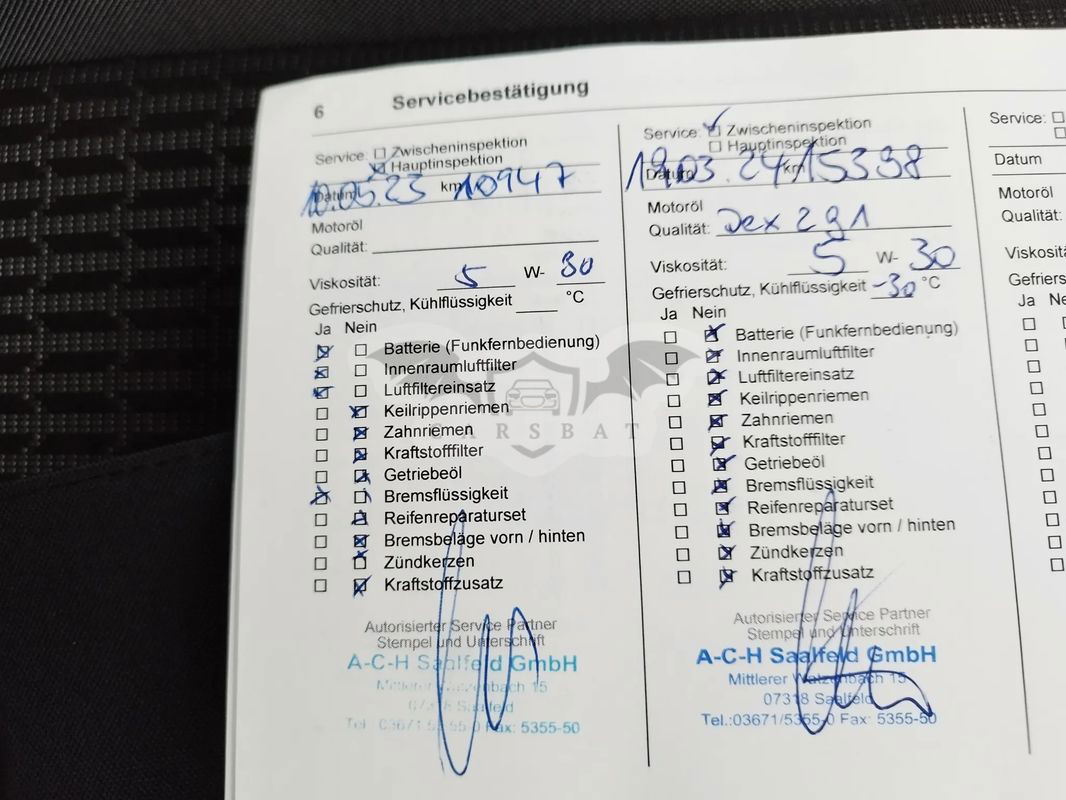 6 Servicebestätigung
Service: ☐ Zwischeninspektion
☒ Hauptinspektion
Datum 10.05.23 km 10947
Motoröl
Qualität:
Viskosität: 5 W- 30
Gefrierschutz, Kühlflüssigkeit °C
Ja Nein
☒ ☐ Batterie (Funkfernbedienung)
☒ ☐ Innenraumluftfilter
☒ ☐ Luftfiltereinsatz
☐ ☒ Keilrippenriemen
☐ ☒ Zahnriemen
☐ ☒ Kraftstofffilter
☐ ☒ Getriebeöl
☒ ☐ Bremsflüssigkeit
☐ ☒ Reifenreparaturset
☐ ☒ Bremsbeläge vorn / hinten
☐ ☒ Zündkerzen
☐ ☒ Kraftstoffzusatz
Autorisierter Service Partner
Stempel und Unterschrift
A-C-H Saalfeld GmbH
Mittlerer Watzenbach 15
07318 Saalfeld
Tel.:03671/5355-0 Fax: 5355-50
Service: ☒ Zwischeninspektion
☐ Hauptinspektion
Datum 19.03.24 km 15398
Motoröl
Qualität: Dex 2 g1
Viskosität: 5 W- 30
Gefrierschutz, Kühlflüssigkeit -30 °C
Ja Nein
☐ ☒ Batterie (Funkfernbedienung)
☐ ☒ Innenraumluftfilter
☐ ☒ Luftfiltereinsatz
☐ ☒ Keilrippenriemen
☐ ☒ Zahnriemen
☐ ☒ Kraftstofffilter
☐ ☒ Getriebeöl
☐ ☒ Bremsflüssigkeit
☐ ☒ Reifenreparaturset
☐ ☒ Bremsbeläge vorn / hinten
☐ ☒ Zündkerzen
☐ ☒ Kraftstoffzusatz
Autorisierter Service Partner
Stempel und Unterschrift
A-C-H Saalfeld GmbH
Mittlerer Watzenbach 15
07318 Saalfeld
Tel.:03671/5355-0 Fax: 5355-50
Service: ☐
☐
Datum
Motoröl
Qualität:
Viskosität:
Gefrierschutz
Ja
CARSBAT